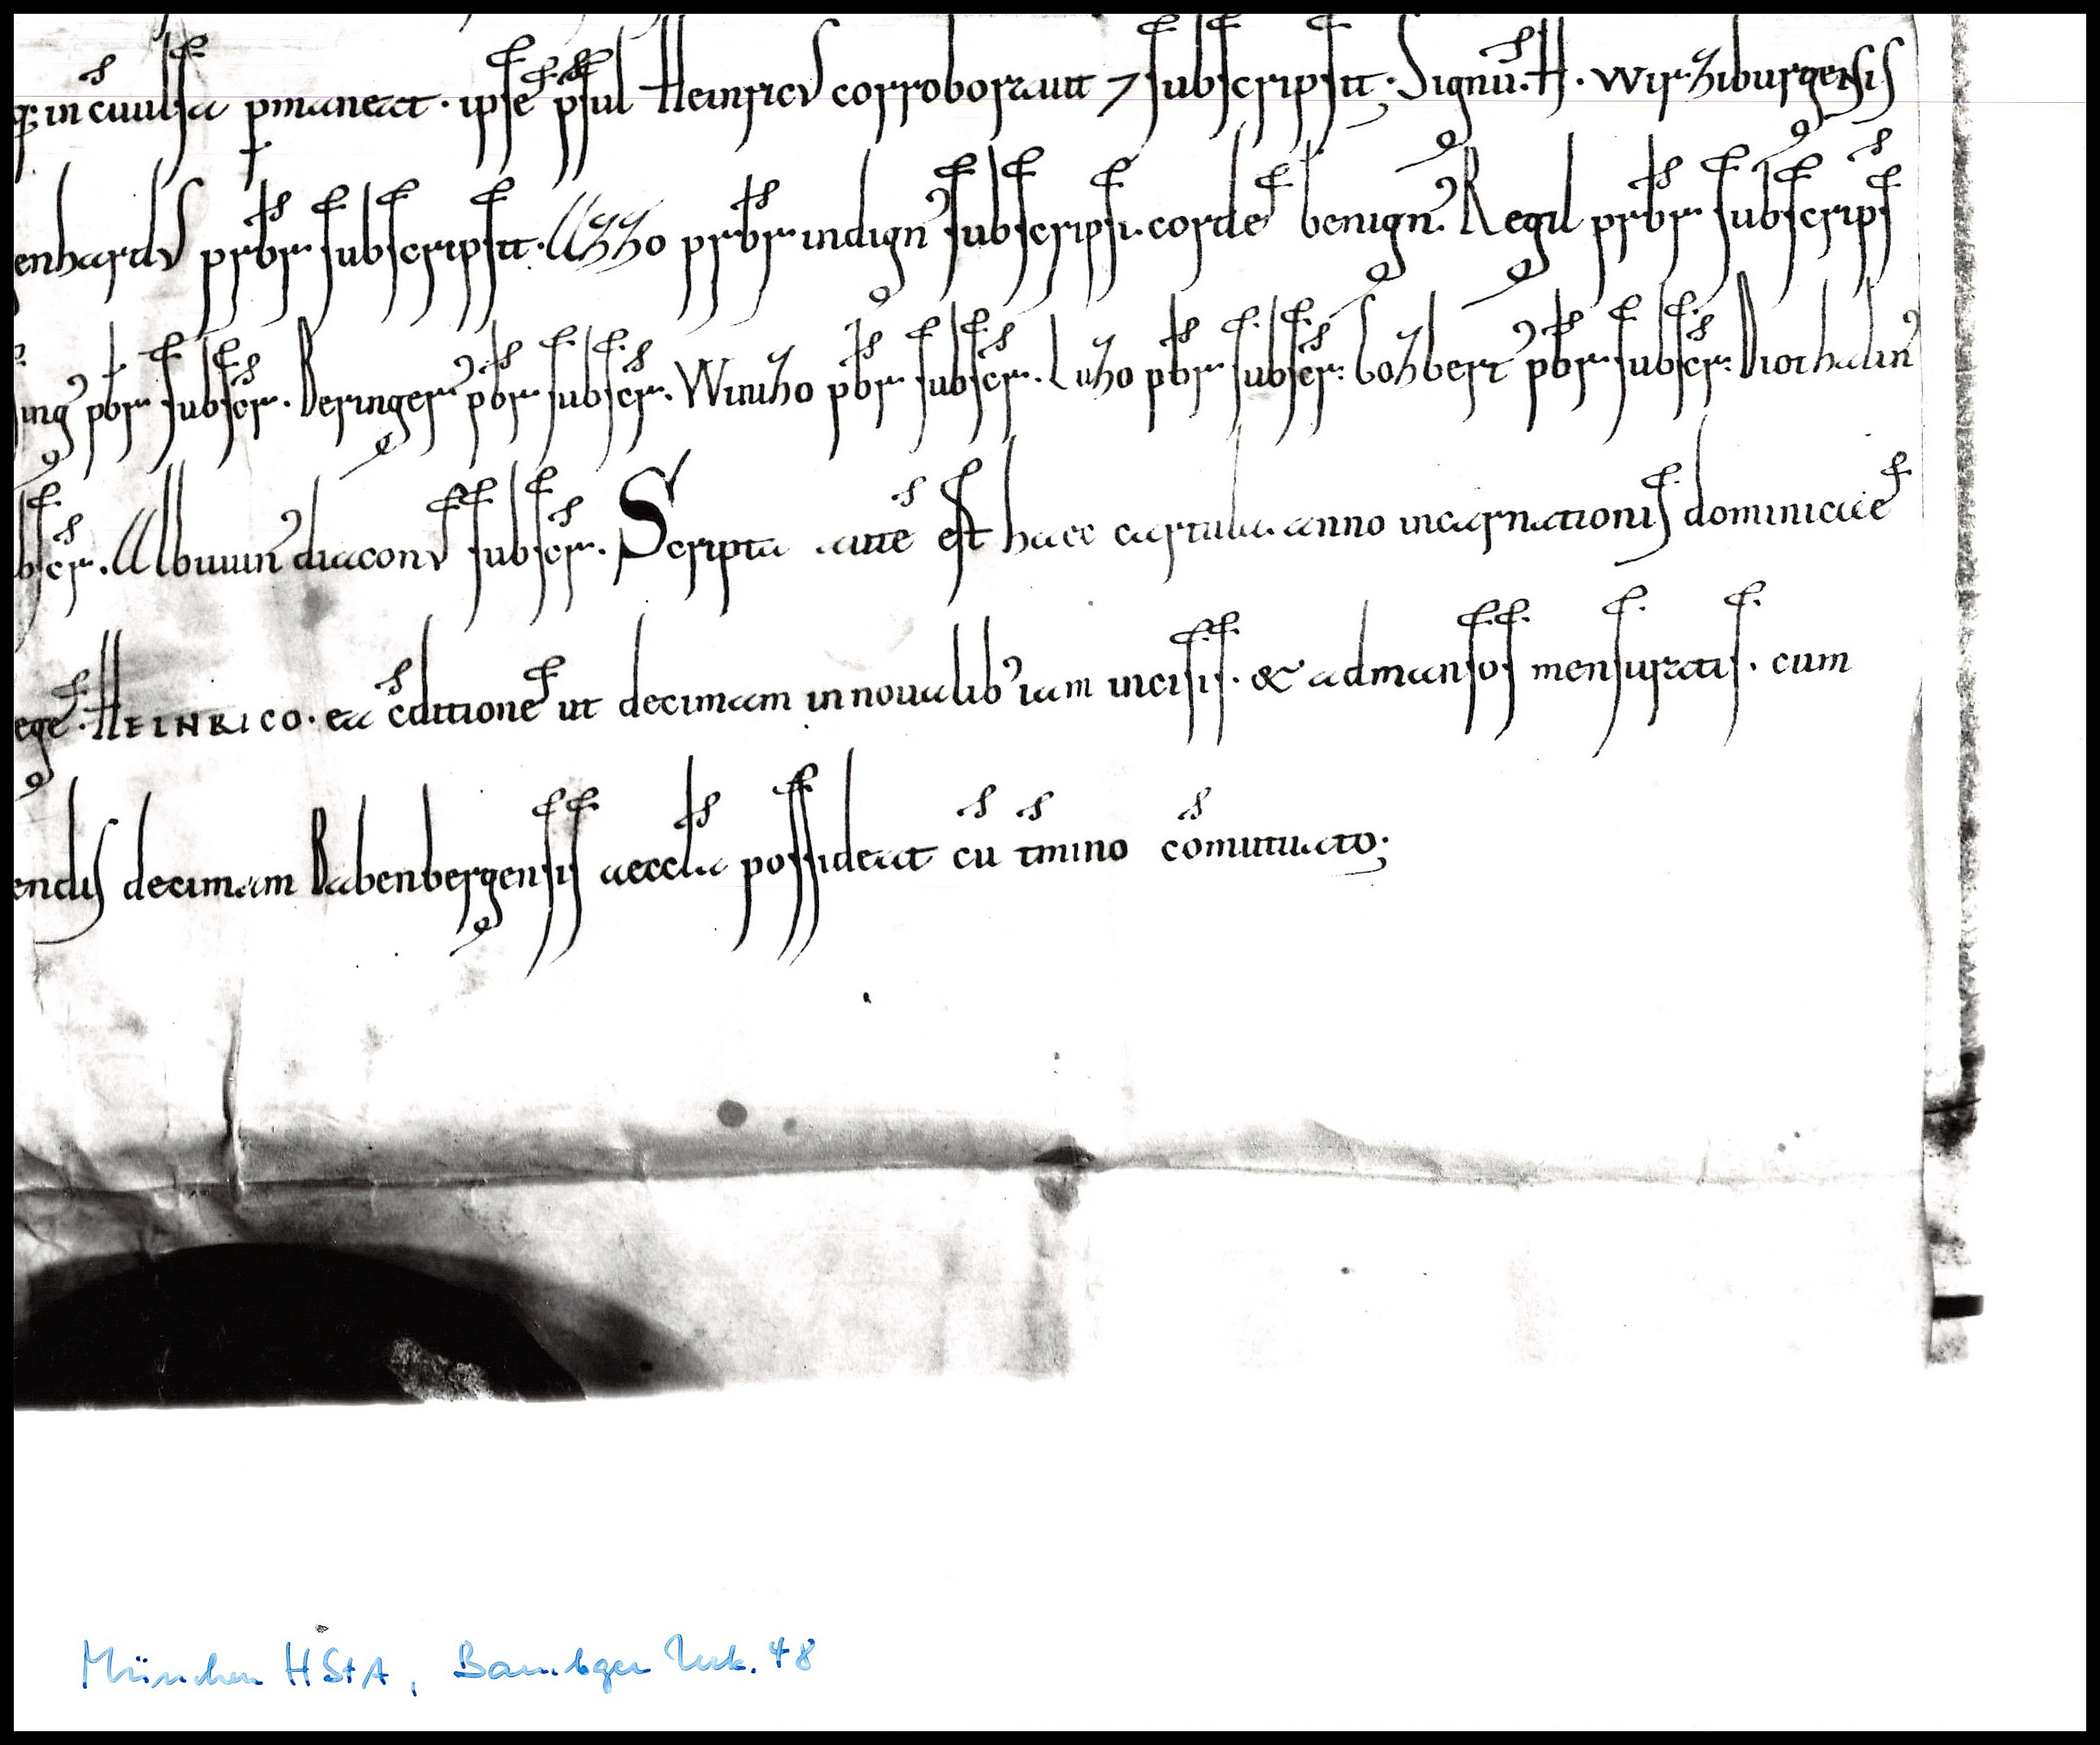 q; in cuulsa pmaneat · ipse psul Heinricus corroborauit 7 subscripsit; Signū · H · wirziburgensis
enhardus prbr subscripsit · Azzo prbr indignꝰ subscripsi · corde benignꝰ. Regil prbr subscrips
ingꝰ pbr subscr. Beringerꝰ pbr subscr. Winizo pbr subscr. Luzo pbr subscr: Gozbertꝰ pbr subscr: Diothalmꝰ
bscr. Albuuinꝰ diaconus subscr. Scripta autē est haec cartula anno incarnationis dominicae
ege · HEINRICO · ea cditione ut decimam in noualibꝰ iam incisis · & ad mansos mensuratis · cum
endis decimam Babenbergensis aeccla possideat cū tmino cōmutuato;
München HStA, Bamberger Urk. 48